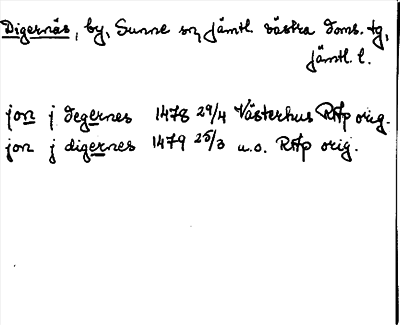 Digernäs, by, Sunne sn, Jämtl. västra doms. tg,
Jämtl. l.
jon j degernes 1478 29/4 Västerhus RAp orig.
jon j digernes 1479 25/3 u.o. RAp orig.